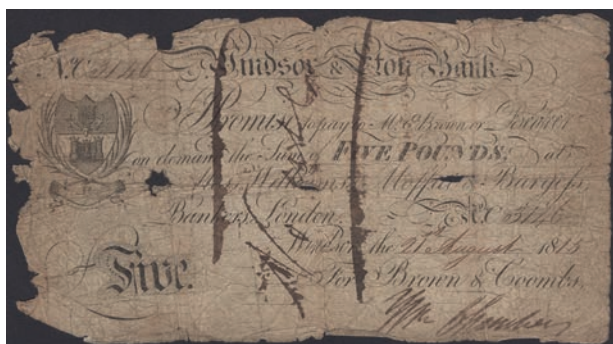 No. C 3146 Windsor & Eton Bank
I Promise to pay to Mr. C. Brown or Bearer
on demand the Sum of FIVE POUNDS, at
Moffat & Burgess,
Bankers, London. No. C 3146
Windsor, the 21st August 1813
£ Five. For Brown & Coombs